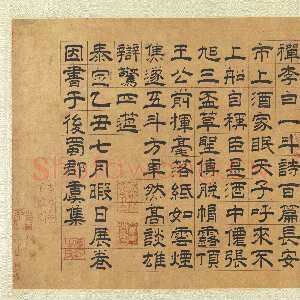 禪李白一斗詩百篇長安
市上酒家眠天子呼來不
上船自稱臣是酒中僊張
旭三盃草聖傳脫帽露頂
王公前揮毫落紙如雲煙
焦遂五斗方卓然高談雄
辯驚四筵
泰定乙丑七月暇日展卷
因書于後蜀郡虞集